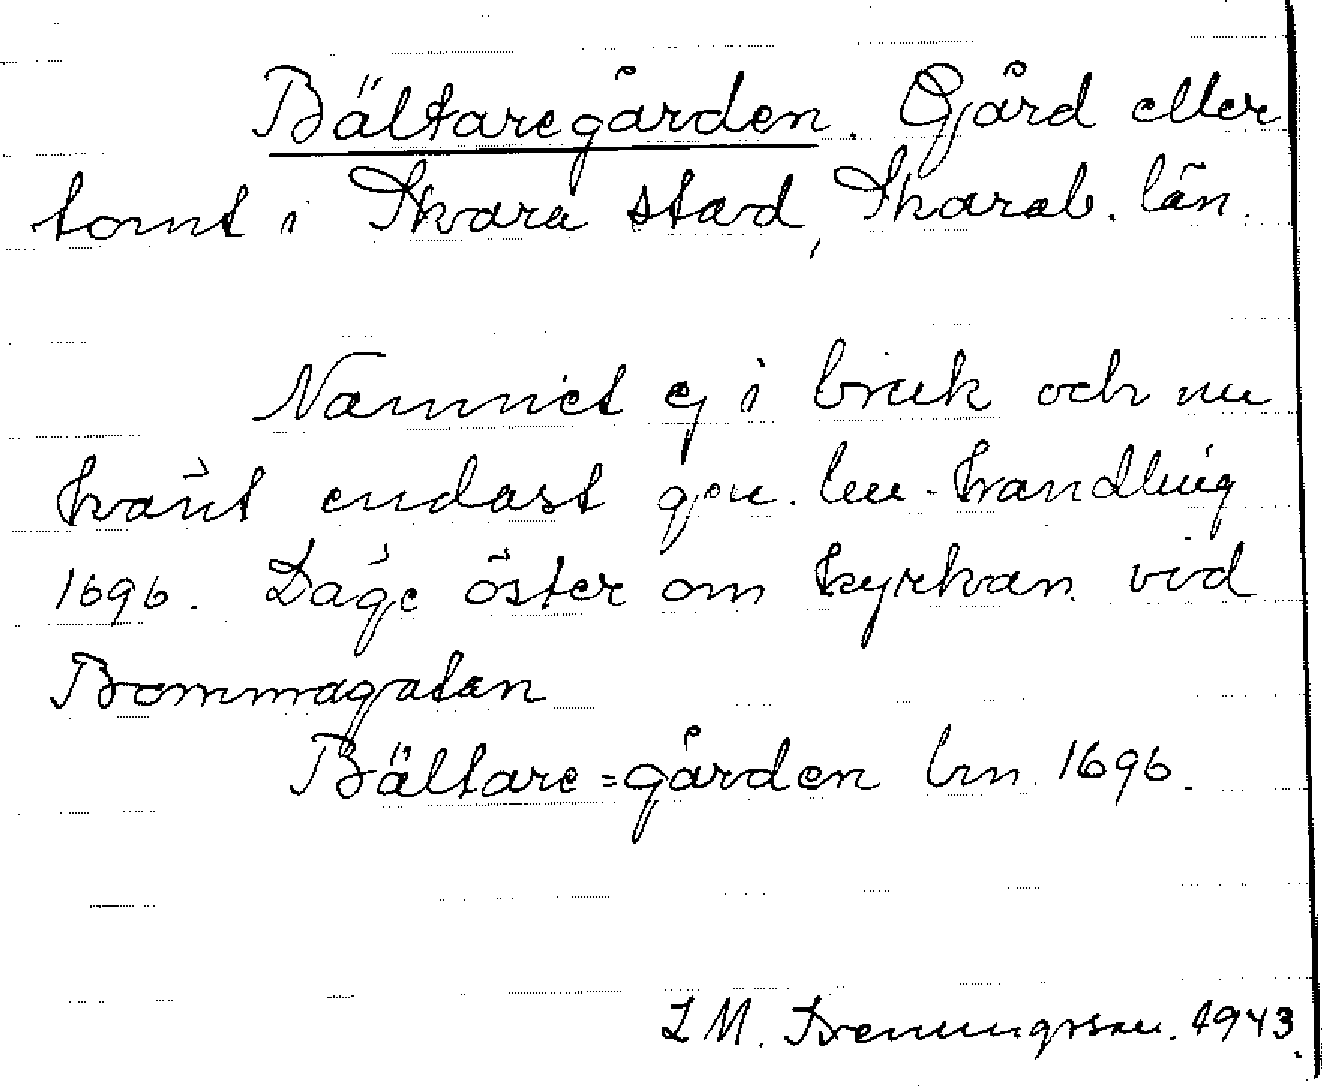 Bältaregården. Gård eller
tomt i Skara stad, Skarab. län.
Namnet ej i bruk och nu
känt endast gm. lm-handling
1696. Läge öster om kyrkan vid
Bommagatan
Bältare=gården lm 1696.
L M. 1943.